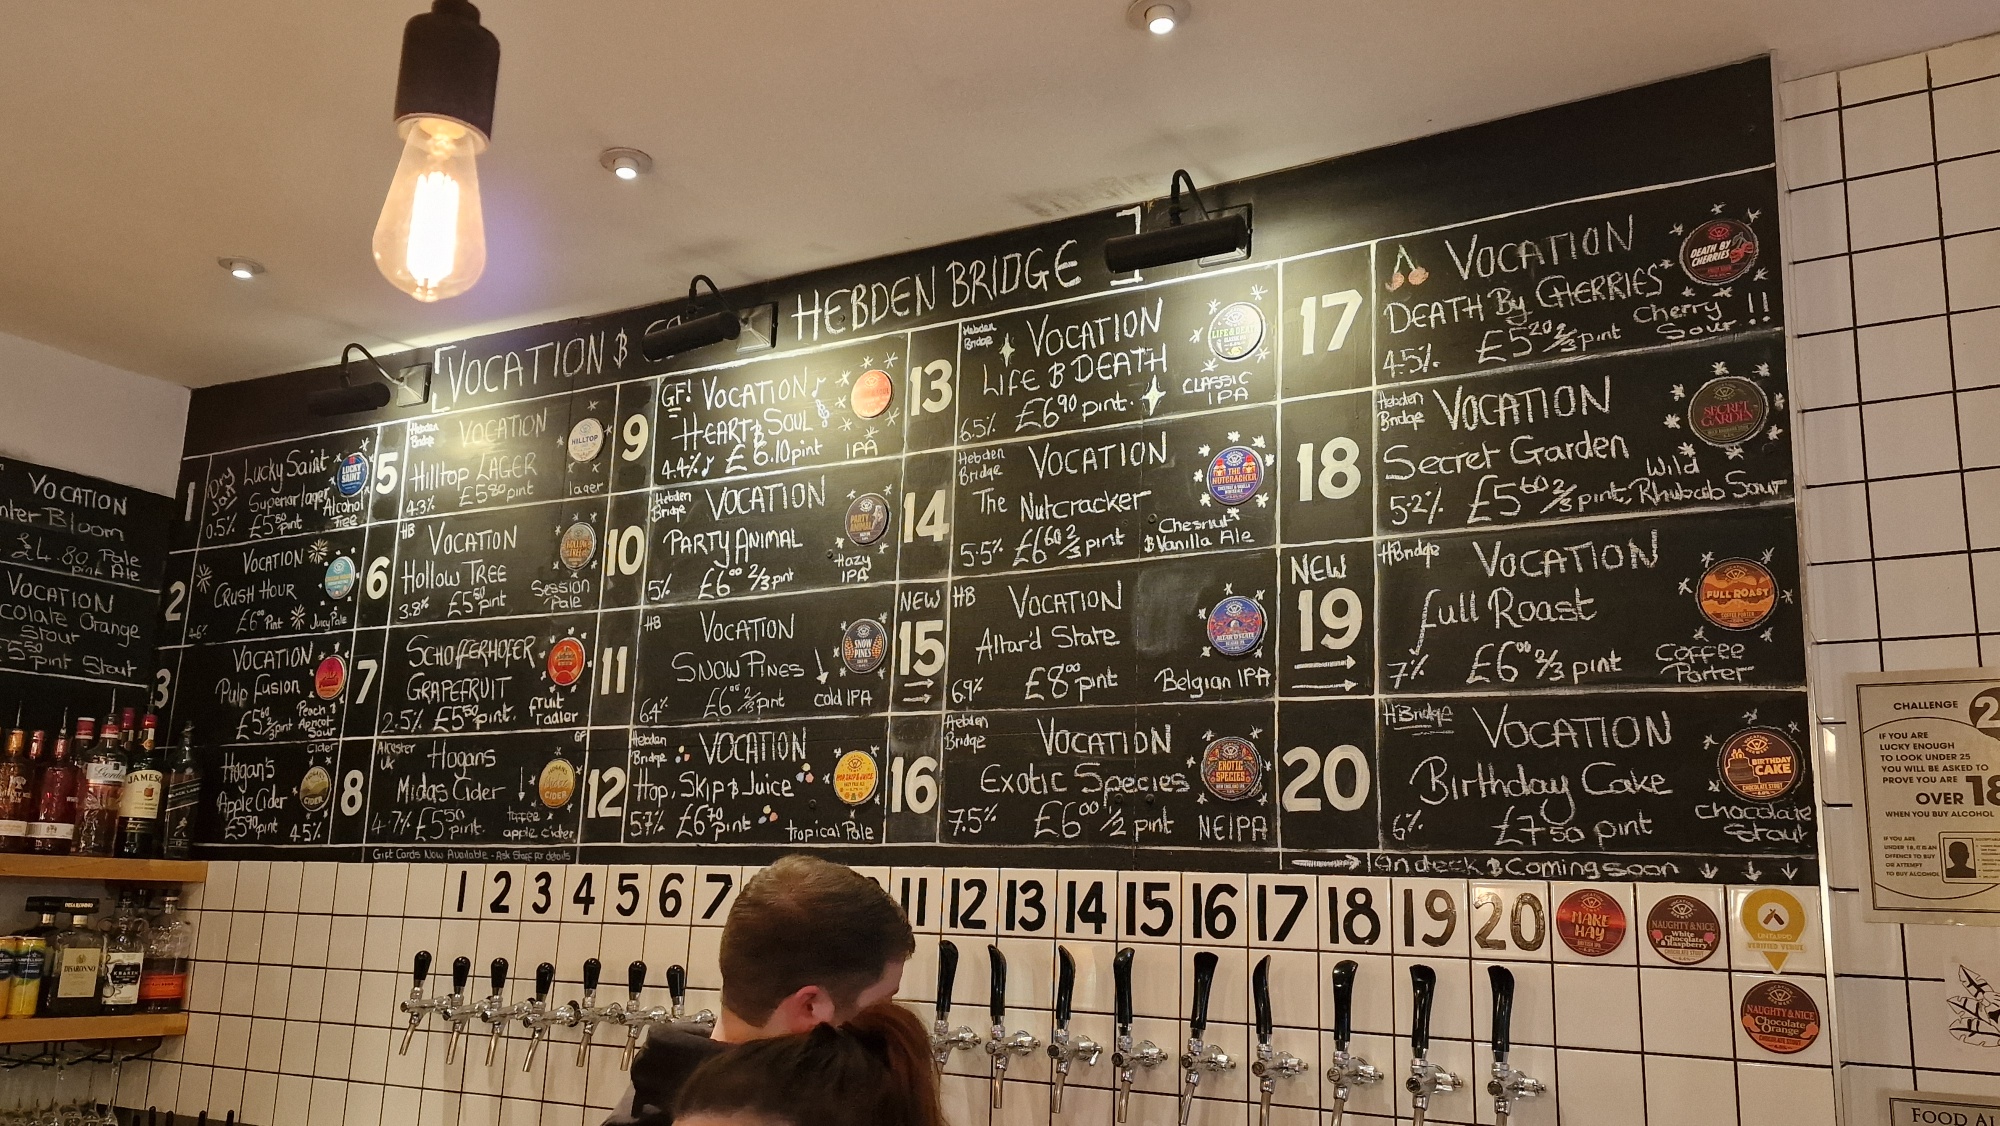 VOCATION &
HEBDEN BRIDGE
VOCATION
nter Bloom
£4.80 Pale
pint Ale
VOCATION
colate Orange
Stout
5⁵⁰ pint Stout
1
Dry Jan!
Lucky Saint
Superior lager
Alcohol
free
0.5% £5⁵⁰ pint
LUCKY SAINT
2
VOCATION
CRUSH HOUR
4.6% £6⁰⁰ Pint Juicy Pale
3
VOCATION
Pulp Fusion
£5⁶⁰ 2/3 pint
Peach &
Apricot
Sour
Cider
Hogan's
Apple Cider
£5⁷⁰ pint 4.5%
5
Hebden
Bridge
VOCATION
Hilltop LAGER
4.3% £5⁸⁰ pint lager
HILLTOP
6
HB
VOCATION
Hollow TREE
3.8% £5⁵⁰ pint
Session
Pale
7
SCHOFFERHOFER
GRAPEFRUIT
2.5% £5⁵⁰ pint.
fruit
radler
8
Alcester
UK
GF
Hogans
Midas Cider
4.7% £5⁵⁰ pint.
toffee
apple cider
9
GF! VOCATION
HEART & SOUL
4.4% £6.10 pint IPA
10
Hebden
Bridge
VOCATION
PARTY ANIMAL
5% £6⁰⁰ 2/3 pint
Hazy
IPA
PARTY ANIMAL
11
HB
VOCATION
SNOW PINES
6.4% £6⁰⁰ 2/3 pint cold IPA
SNOW PINES
12
Hebden
Bridge
VOCATION
Hop, Skip & Juice
5.7% £6⁷⁰ pint tropical Pale
HOP SKIP & JUICE
13
Hebden
Bridge
VOCATION
LIFE & DEATH
6.5% £6⁹⁰ pint.
CLASSIC
IPA
LIFE & DEATH
14
Hebden
Bridge
VOCATION
The Nutcracker
5.5% £6⁶⁰ 2/3 pint
Chesnut
& Vanilla Ale
THE NUTCRACKER
NEW
15
HB
VOCATION
Altar'd State
6.9% £8⁰⁰ pint Belgian IPA
ALTAR'D STATE
16
Hebden
Bridge
VOCATION
Exotic Species
7.5% £6⁰⁰ 1/2 pint NEIPA
EXOTIC SPECIES
17
VOCATION
DEATH By CHERRIES
4.5% £5²⁰ 2/3 pint
Cherry
Sour !!
DEATH BY CHERRIES
18
Hebden
Bridge
VOCATION
Secret Garden
5.2% £5⁶⁰ 2/3 pint.
Wild
Rhubarb Sour
SECRET GARDEN
NEW
19
HBridge
VOCATION
Full Roast
7% £6⁰⁰ 2/3 pint
Coffee
Porter
FULL ROAST
20
HBridge
VOCATION
Birthday Cake
6% £7⁵⁰ pint
Chocolate
Stout
BIRTHDAY CAKE
CHOCOLATE STOUT
Gift Cards Now Available - Ask Staff for details
On deck & Coming soon
1 2 3 4 5 6 7 11 12 13 14 15 16 17 18 19 20
MAKE HAY
NAUGHTY & NICE
White
Chocolate
Raspberry
UNTAPPD
VERIFIED VENUE
NAUGHTY & NICE
Chocolate
Orange
CHOCOLATE STOUT
CHALLENGE 2
IF YOU ARE
LUCKY ENOUGH
TO LOOK UNDER 25
YOU WILL BE ASKED TO
PROVE YOU ARE
OVER 18
WHEN YOU BUY ALCOHOL
IF YOU ARE
UNDER 18, IT IS AN
OFFENCE TO BUY
OR ATTEMPT
TO BUY ALCOHOL
FOOD AL
JAMES
DISARONNO
KRAKEN